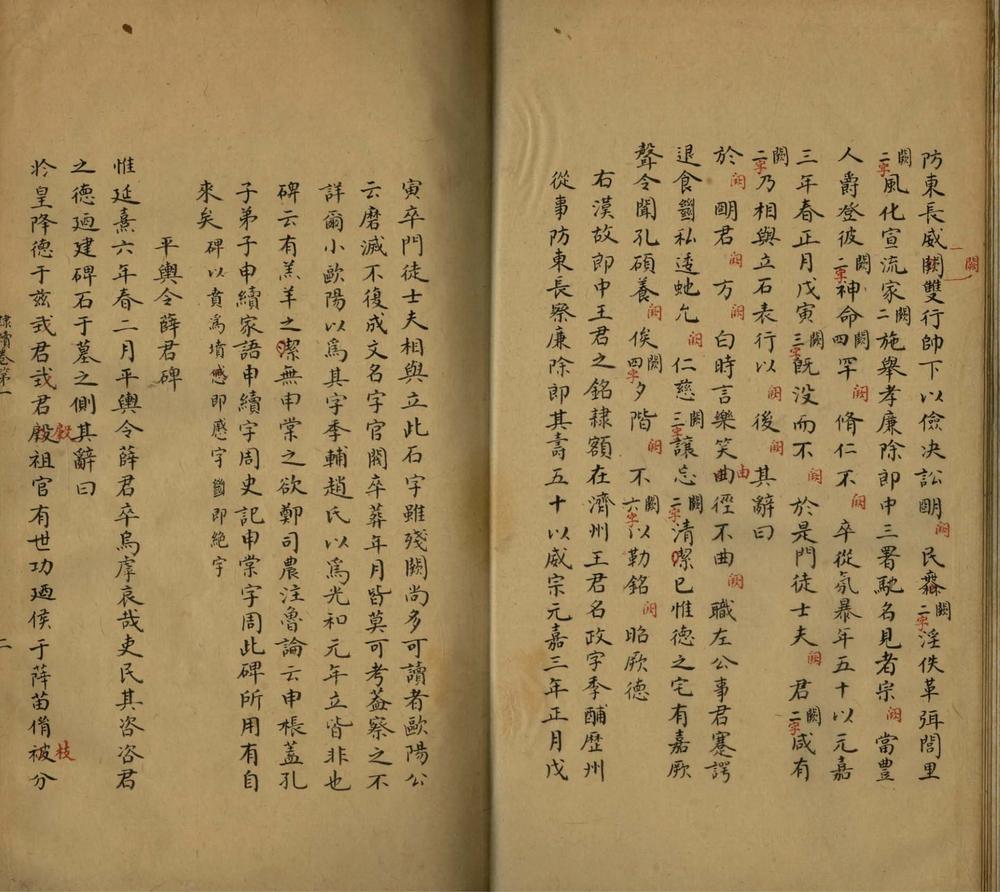 防東長威闕雙行帥下以儉決訟明闕民㐮闕二字淫佚革弭閭里
闕二字風化宣流家闕二施舉孝廉除郎中三署馳名見者宗闕當豊
人爵登彼闕二字神命四罕闕脩仁不闕卒從氛暴年五十以元嘉
三年春正月戊寅闕三字旣没而不闕於是門徒士夫闕君闕二字咸有
闕二字乃相與立石表行以闕後闕其辭曰
於闕明君闕方闕白時言樂笑曲由徑不曲闕職左公事君蹇諤
退食㡭私逶虵允闕仁慈闕三字讓忘闕二字清潔已惟德之宅有嘉厥
聲令聞孔碩養闕俟闕四字夕階闕不闕六字以勒銘闕昭厥德
右漢故郎中王君之銘隸額在濟州王君名政字季酺歷州
從事防東長察廉除郎其壽五十以威宗元嘉三年正月戊
寅卒門徒士夫相與立此石字雖殘闕尚多可讀者歐陽公
云磨滅不復成文名字官閥卒葬年月皆莫可考葢察之不
詳爾小歐陽以爲其字季輔趙氏以爲光和元年立皆非也
碑云有羔羊之潔無申棠之欲鄭司農注魯論云申棖蓋孔
子弟子申續家語申續字周史記申棠字周此碑所用有自
來矣碑以賁爲墳慼即感字㡭即絶字
平輿令薛君碑
惟延熹六年春二月平輿令薛君卒烏虖哀哉吏民其咨咨君
之德廼建碑石于墓之側其辭曰
於皇降德于兹我君我君殷祖官有世功廼侯于薛苗脩被枝分
隸續卷第一
二